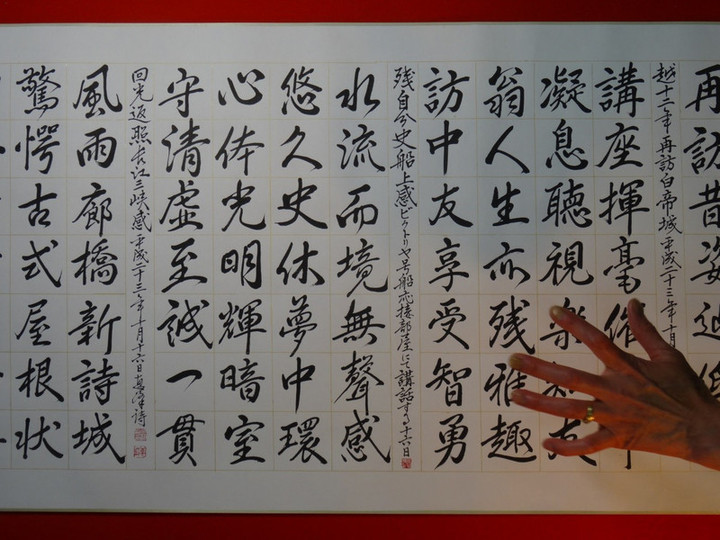 再訪昔姿
越十二年再訪白帝城 平成二十三年十月
講座揮毫
凝息聽視
翁人生亦残雅趣
訪中友享受智勇
残自分史船上感 ビクトリヤ号船応接部屋にて講話する十六日
水流而境無聲感
悠久史休夢中環
心体光明輝暗室
守清虚至誠一貫
回光返照長江三峡感 平成二十三年十月十六日 詩
風雨廊橋新詩城
驚愕古式屋根状